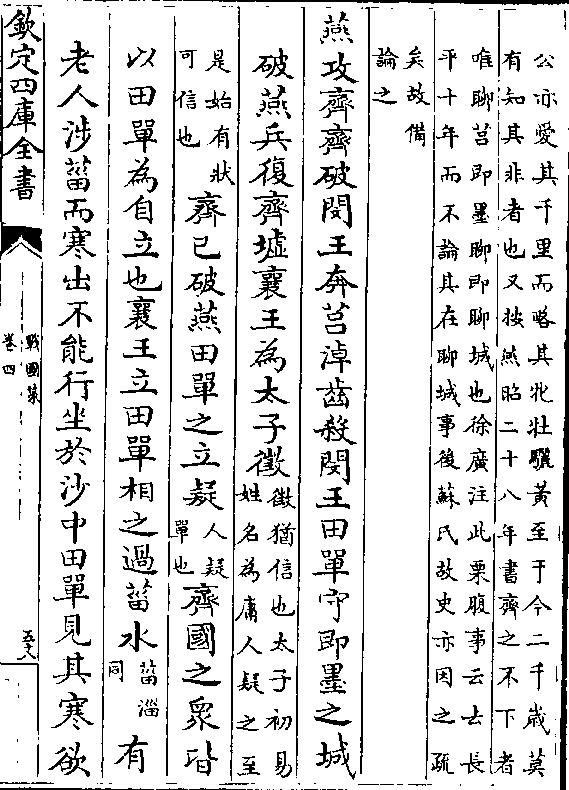 公亦愛其千里而略其牝牡驪黄至于今二千歳莫
有知其非者也又按燕昭二十八年書齊之不下者
唯聊莒即墨聊即聊城也徐廣注此栗腹事云去長
平十年而不論其在聊城事後蘇氏故史亦因之疏
矣故備
論之
燕攻齊齊破閔王奔莒淖齒殺閔王田單守即墨之城
破燕兵復齊墟襄王為太子徵徵猶信也太子初易姓名為庸人疑之至
是始有狀可信也齊已破燕田單之立疑人疑單也齊國之衆皆
以田單為自立也襄王立田單相之過菑水菑淄同有
老人涉菑而寒出不能行坐於沙中田單見其寒欲
欽定四庫全書
戰國策
卷四
五十八